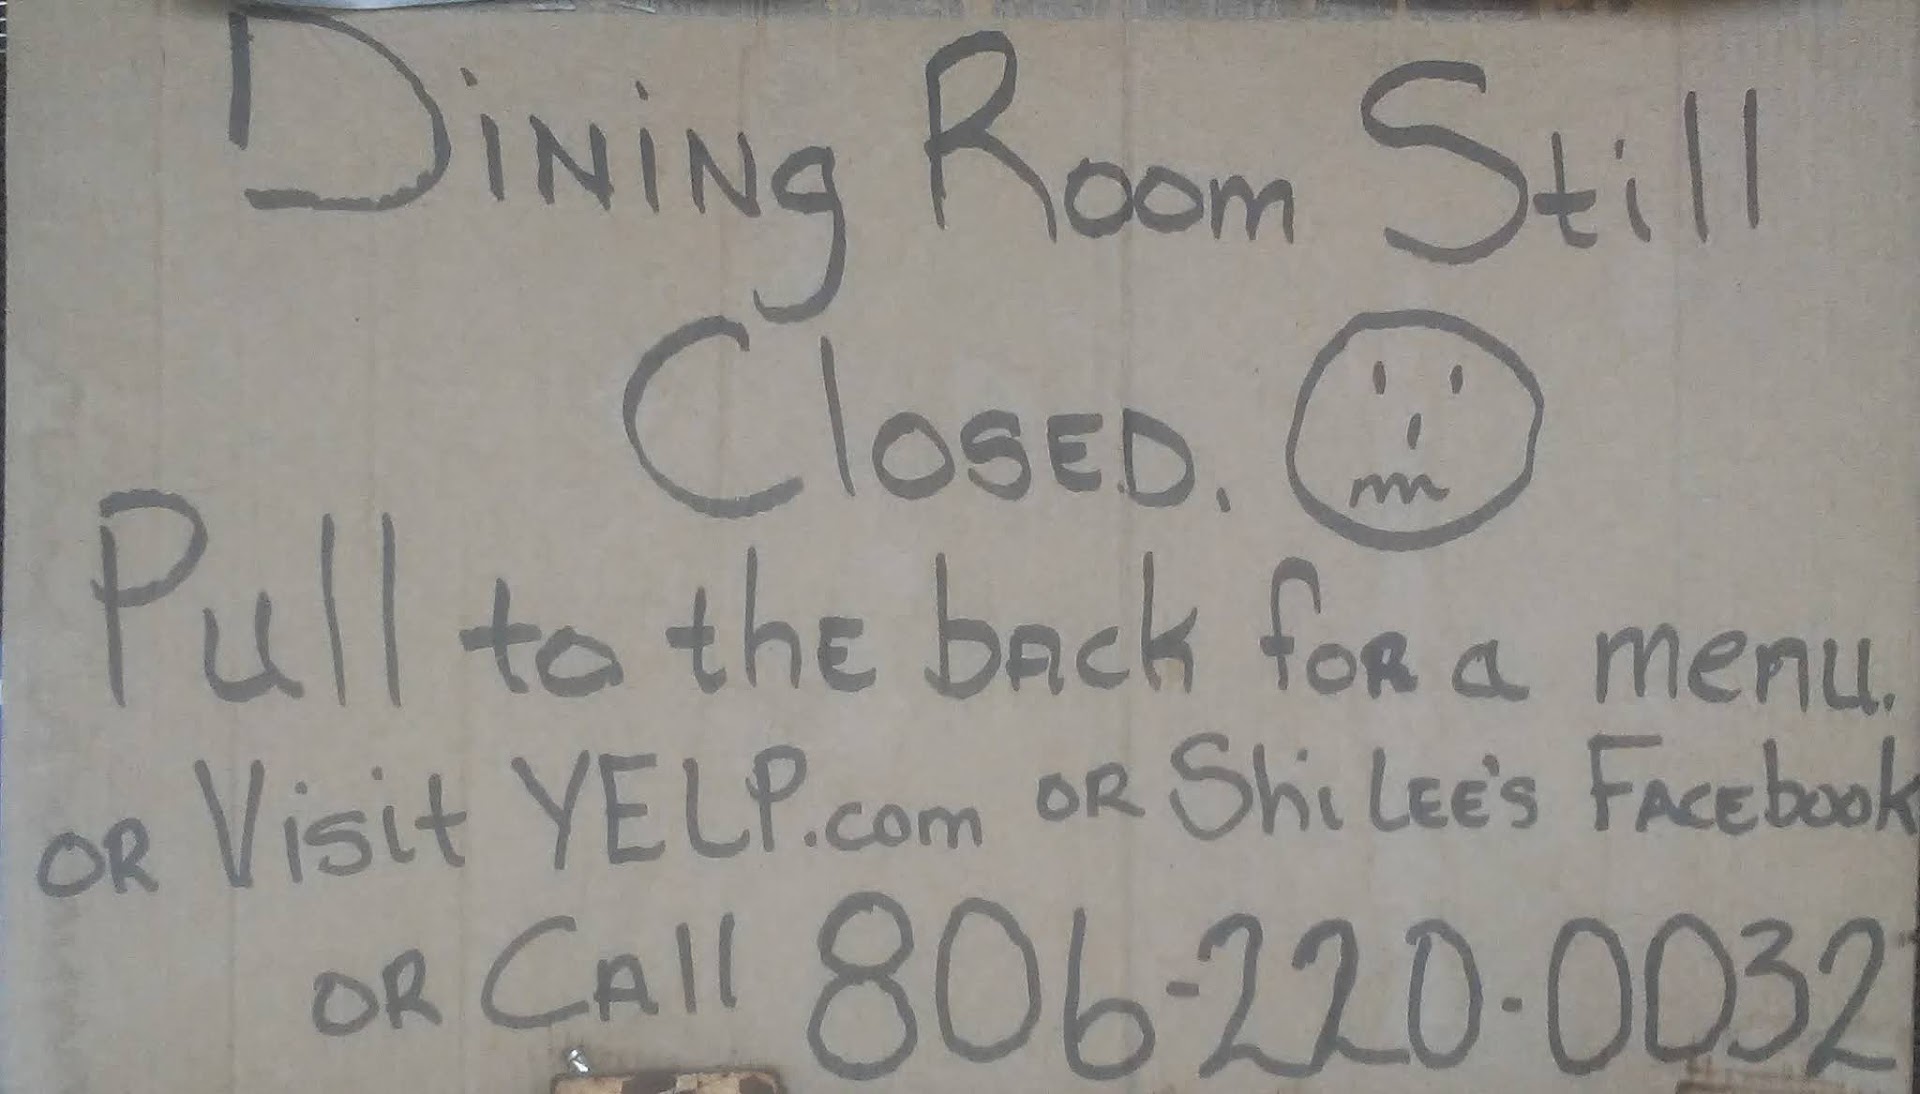 Dining Room Still
Closed.
Pull to the back for a menu.
or Visit YELP.com or Shi Lee's Facebook
or Call 806-220-0032